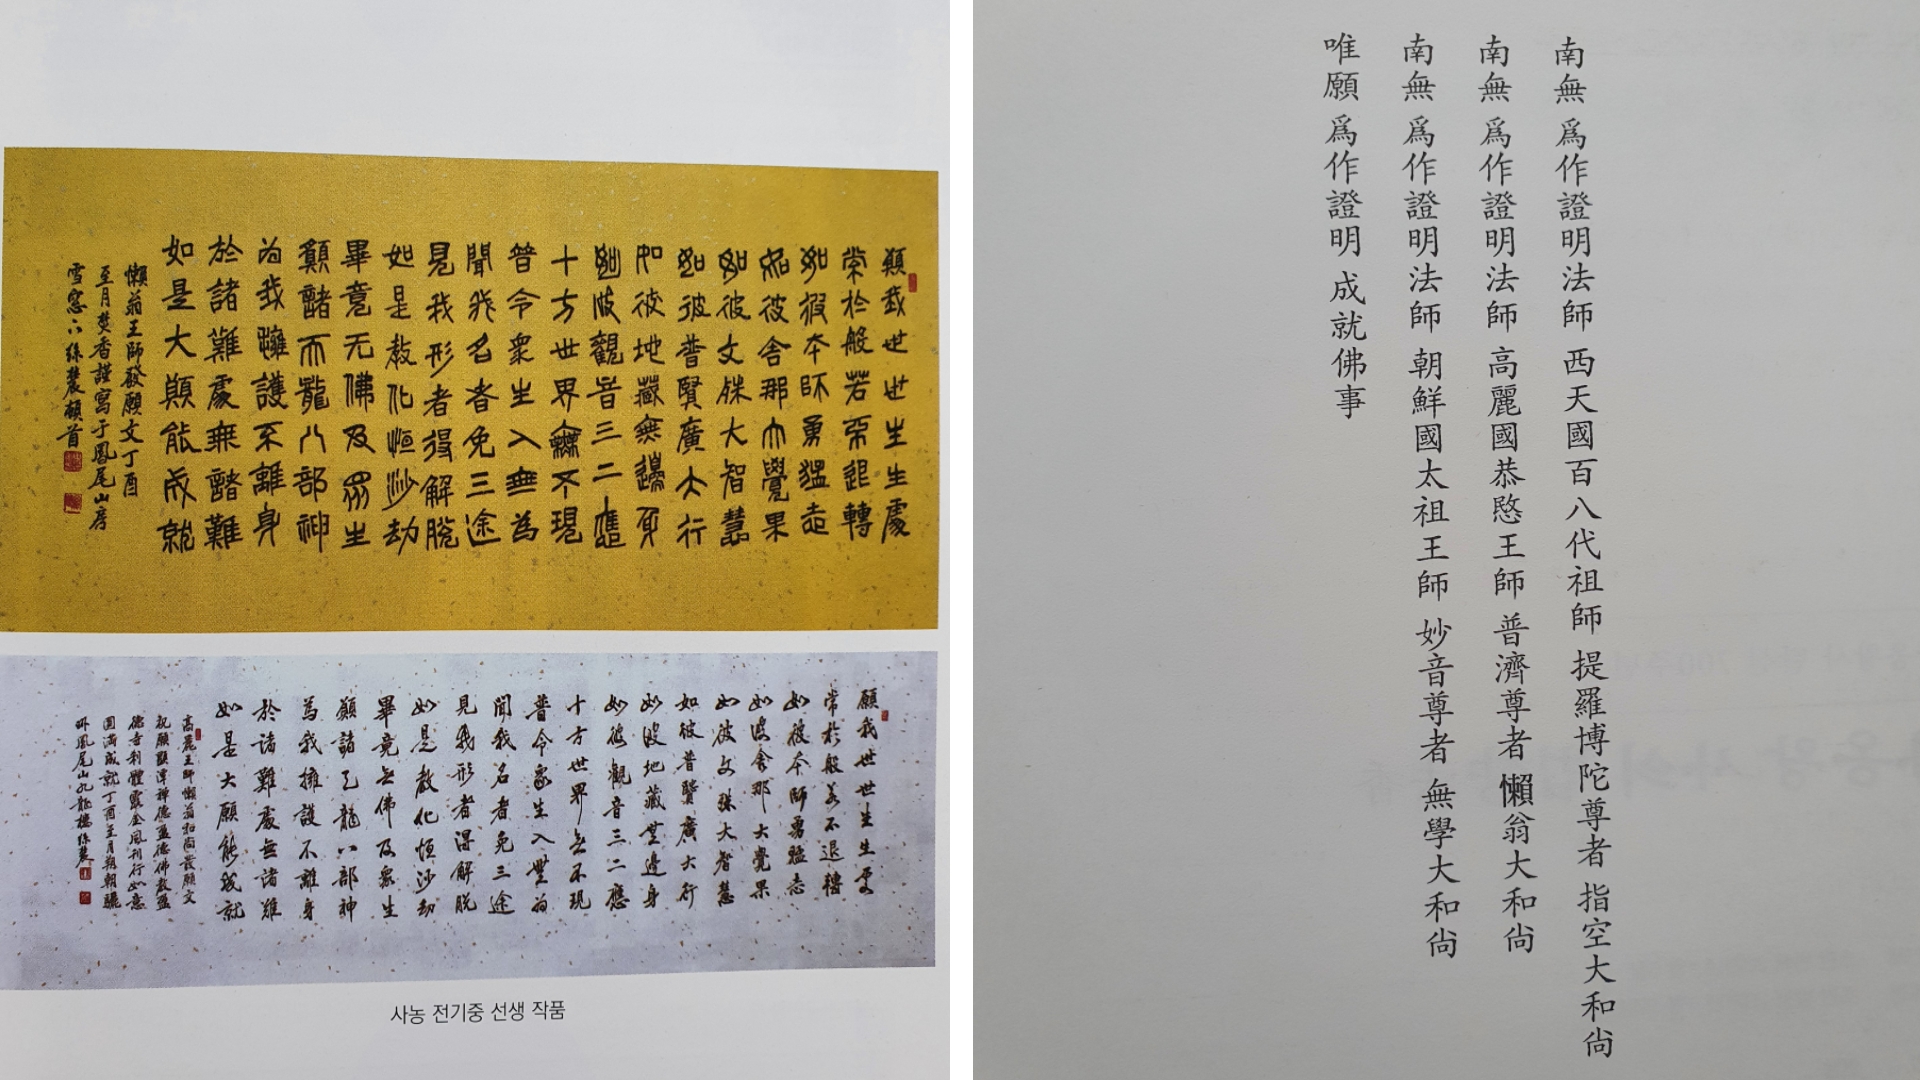 願我世世生生處
常於般若不退轉
如彼本師勇猛志
如彼舍那大覺果
如彼文殊大智慧
如彼普賢廣大行
如彼地藏無邊身
如彼觀音三二應
十方世界無不現
普令衆生入無為
聞我名者免三途
見我形者得解脫
如是教化恒沙劫
畢竟无佛及眾生
願諸而龍八部神
為我擁護不離身
於諸難處無諸難
如是大願能成就
懶翁王師發願文丁酉
至月焚香謹寫于鳳尾山房
雪窓下絲農頓首
願我世世生生處
常於般若不退轉
如彼本師勇猛志
如彼舍那大覺果
如彼文殊大智慧
如彼普賢廣大行
如彼地藏無邊身
如彼觀音三二應
十方世界無不現
普令衆生入無為
聞我名者免三途
見我形者得解脫
如是教化恒沙劫
畢竟無佛及衆生
願諸天龍八部神
為我擁護不離身
於諸難處無諸難
如是大願能成就
高麗王師懶翁和尚發願文
祝願顯潭禪德盈德佛教盈
德寺刹體靈金風刊行如意
圓滿成就丁酉至月朔朝驪
鳳尾山九龍樓絲農
사농 전기중 선생 작품
南無 爲作證明法師 西天國百八代祖師 提羅博陀尊者 指空大和尙
南無 爲作證明法師 高麗國恭愍王師 普濟尊者 懶翁大和尙
南無 爲作證明法師 朝鮮國太祖王師 妙音尊者 無學大和尙
唯願 爲作證明 成就佛事